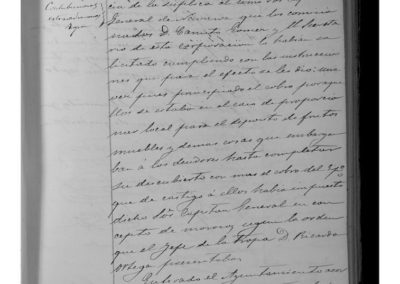 Contribuciones
extraordinarias
cia de la suplica al
General de Navarra que los comisio
nados D. Camilo Gomez y
rio de esta corporacion le habian so
licitado cumpliendo con las instruccio
nes que para el efecto se les dio: una
vez pues principiado el cobro porque
ellos se estaba en el caso de proporcio
nar local para el deposito de frutos
muebles y demas cosas que embarga
ba á los deudores hasta completar
su descubierto con mas el sobre del
que de castigo á ellos habia impuesto
dicho Sor Capitan General en con
cepto de morosos segun la orden
que el Jefe de la tropa D. Ricardo
Ortega presentaba.
Enterado el Ayuntamiento acor